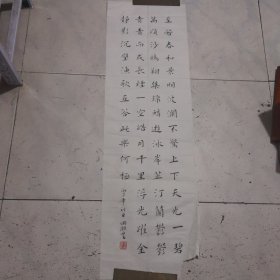 至若春和景明波瀾不驚上下天光一碧
萬頃沙鷗翔集錦鱗遊泳岸芷汀蘭鬱鬱
青青而或長煙一空皓月千里浮光耀金
靜影沉璧漁歌互答此樂何極